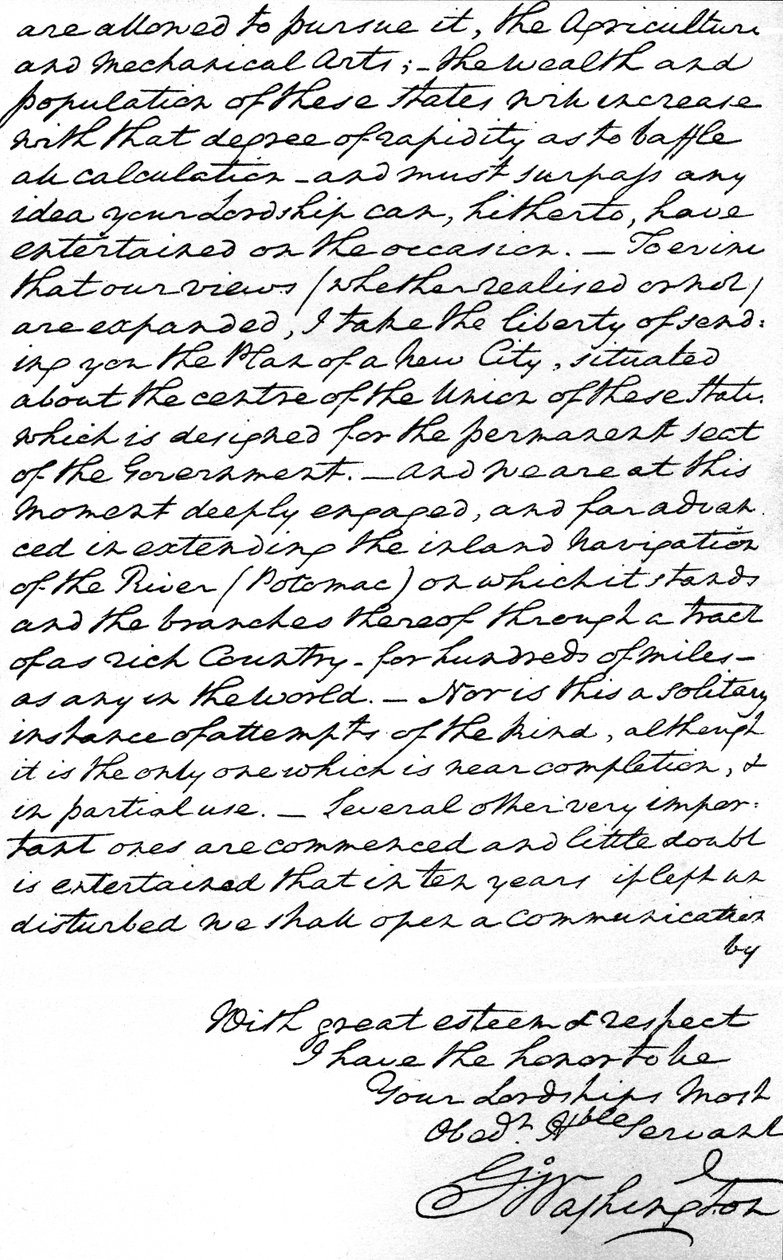 are allowed to pursue it, the Agriculture
and Mechanical Arts; - the wealth and
population of these States will increase
with that degree of rapidity as to baffle
all calculation - and must surpass any
idea your Lordship can, hitherto, have
entertained on the occasion. — To evince
that our views (whether realised or not)
are expanded, I take the liberty of send:
ing you the Plan of a New City, situated
about the centre of the Union of these States,
which is designed for the permanent seat
of the Government. — and we are at this
moment deeply engaged, and far advan
ced in extending the inland Navigation
of the River (Potomac) on which it stands
and the branches thereof through a tract
of as rich Country - for hundreds of miles -
as any in the world. — Nor is this a solitary
instance of attempts of the kind, although
it is the only one which is near completion, &
in partial use. — Several other very impor:
tant ones are commenced and little doubt
is entertained that in ten years if left un
disturbed we shall open a communication
by
With great esteem & respect
I have the honor to be
Your Lordships Most
Obedt. Hble Servant
Go: Washington